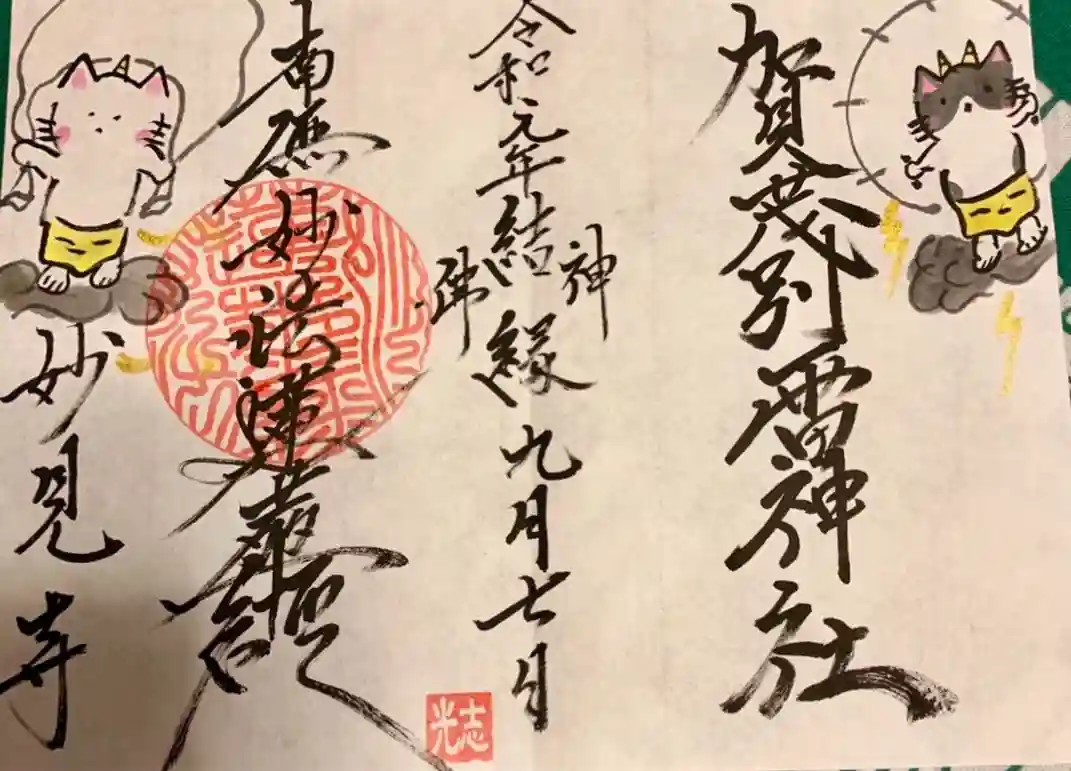 賀茂別雷神社
神
令和元年結縁九月七日
佛
南無妙法蓮華經
妙見寺
志光